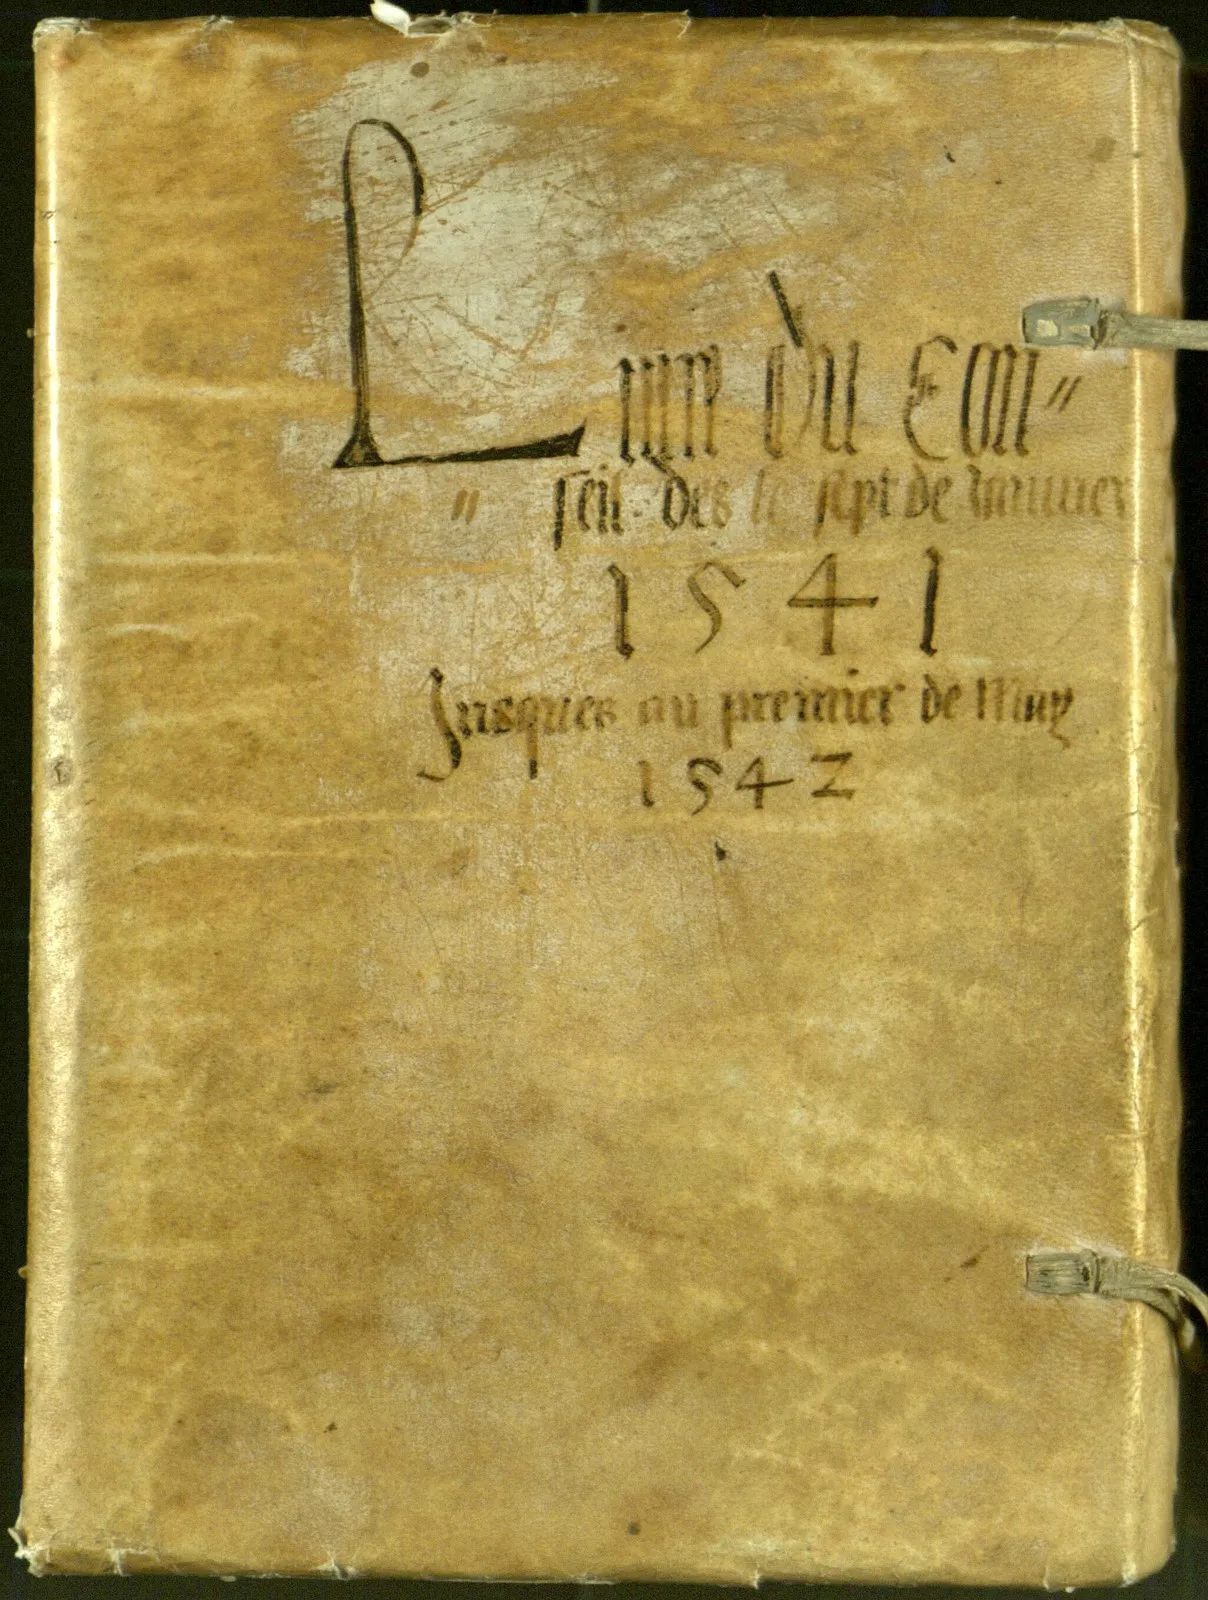 Livre du Con"
"seil des le sept de Januier
1541
Jusques au premier de May
1542